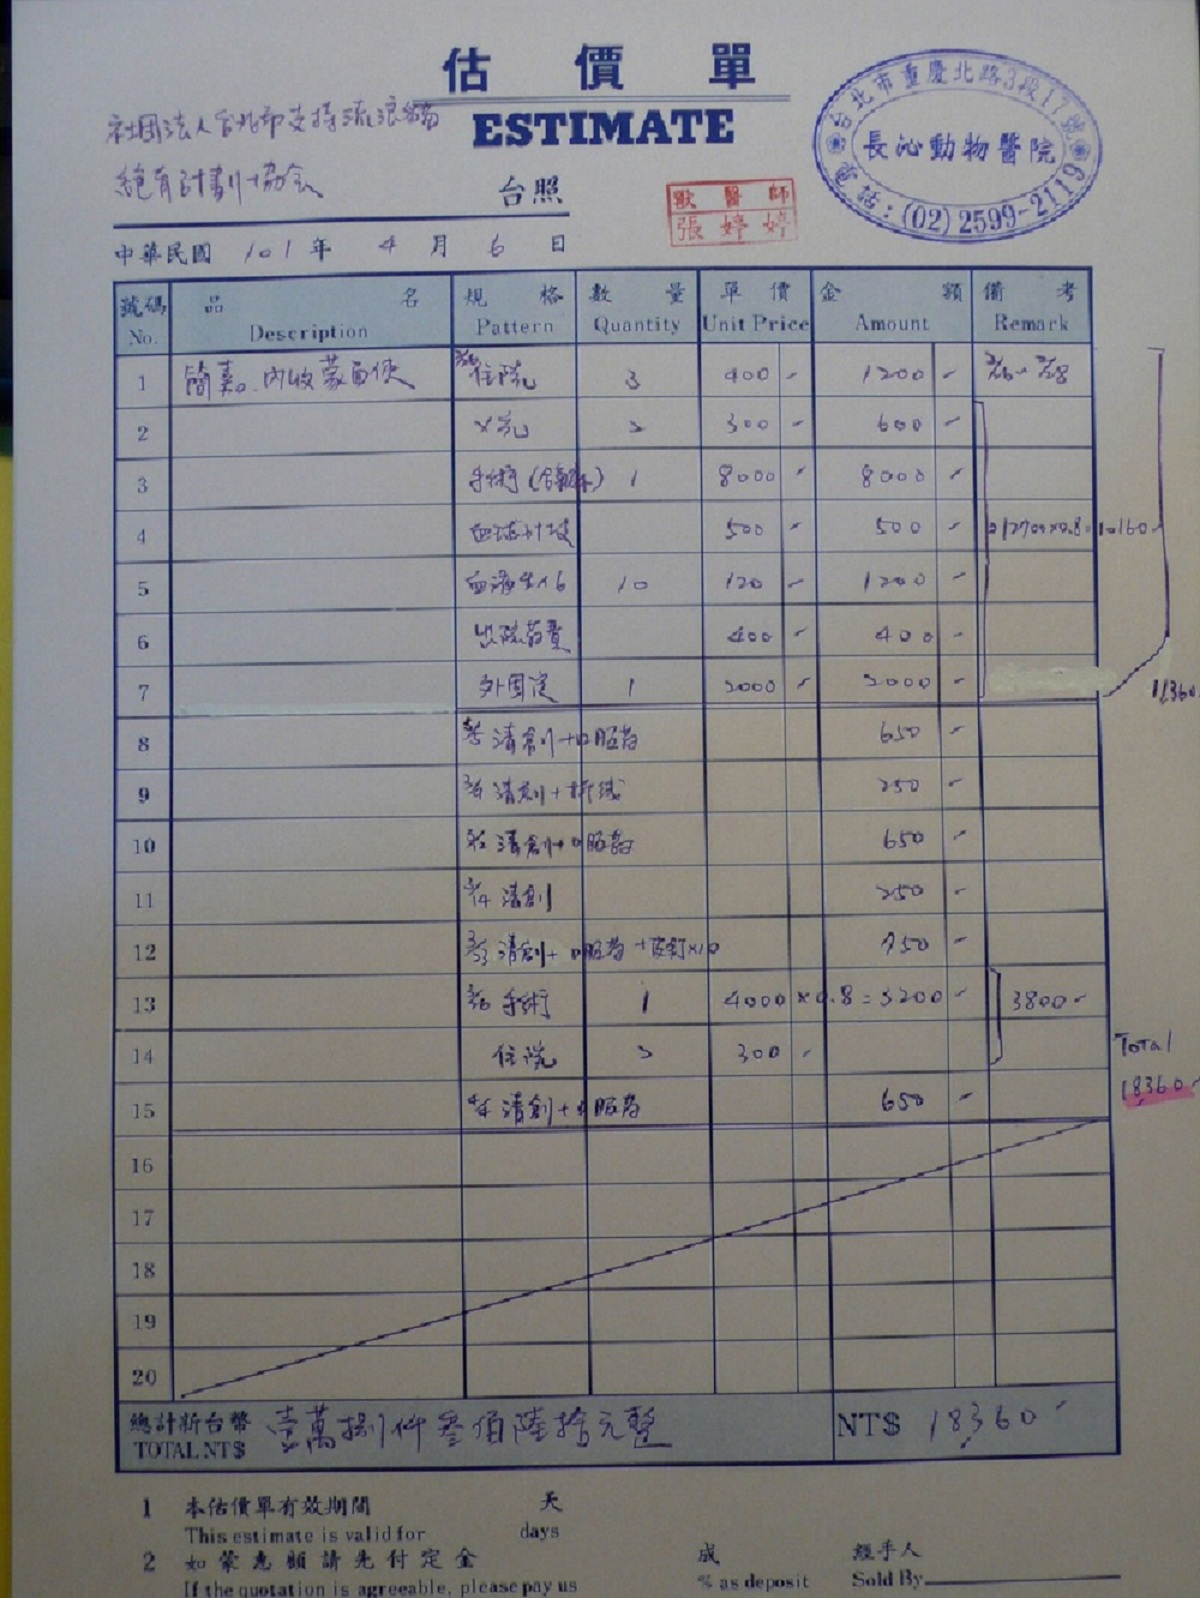 估價單
ESTIMATE
社團法人台北市支持流浪貓
絕育計劃協會 台照
台北市重慶北路3段17號
長沁動物醫院
電話:(02)2599-2119
獸醫師
張婷婷
中華民國 101 年 4 月 6 日
號碼 品名 規格 數量 單價 金額 備考
No. Description Pattern Quantity Unit Price Amount Remark
1 住院 3 400 - 1200 -
2 X光 2 300 - 600 -
3 手術 1 8000 - 8000 -
4 500 - 500 - 12700x0.8=10160-
5 10 120 - 1200 -
6 出院藥費 400 - 400 -
7 外固定 1 2000 - 2000 -
11360
8 清創+口服藥 650 -
9 清創+拆線 250 -
10 清創+口服藥 650 -
11 3/14 清創 250 -
12 清創+口服藥+皮釘x10 950 -
13 手術 1 4000x0.8=3200 - 3800-
14 住院 2 300 -
Total
18,360-
15 清創+口服藥 650 -
16
17
18
19
20
總計新台幣 壹萬捌仟叁佰陸拾元整 NT$ 18,360-
TOTAL NT$
1 本估價單有效期間 天
This estimate is valid for days
2 如蒙惠顧請先付定金 成 經手人
If the quotation is agreeable, please pay us % as deposit Sold By